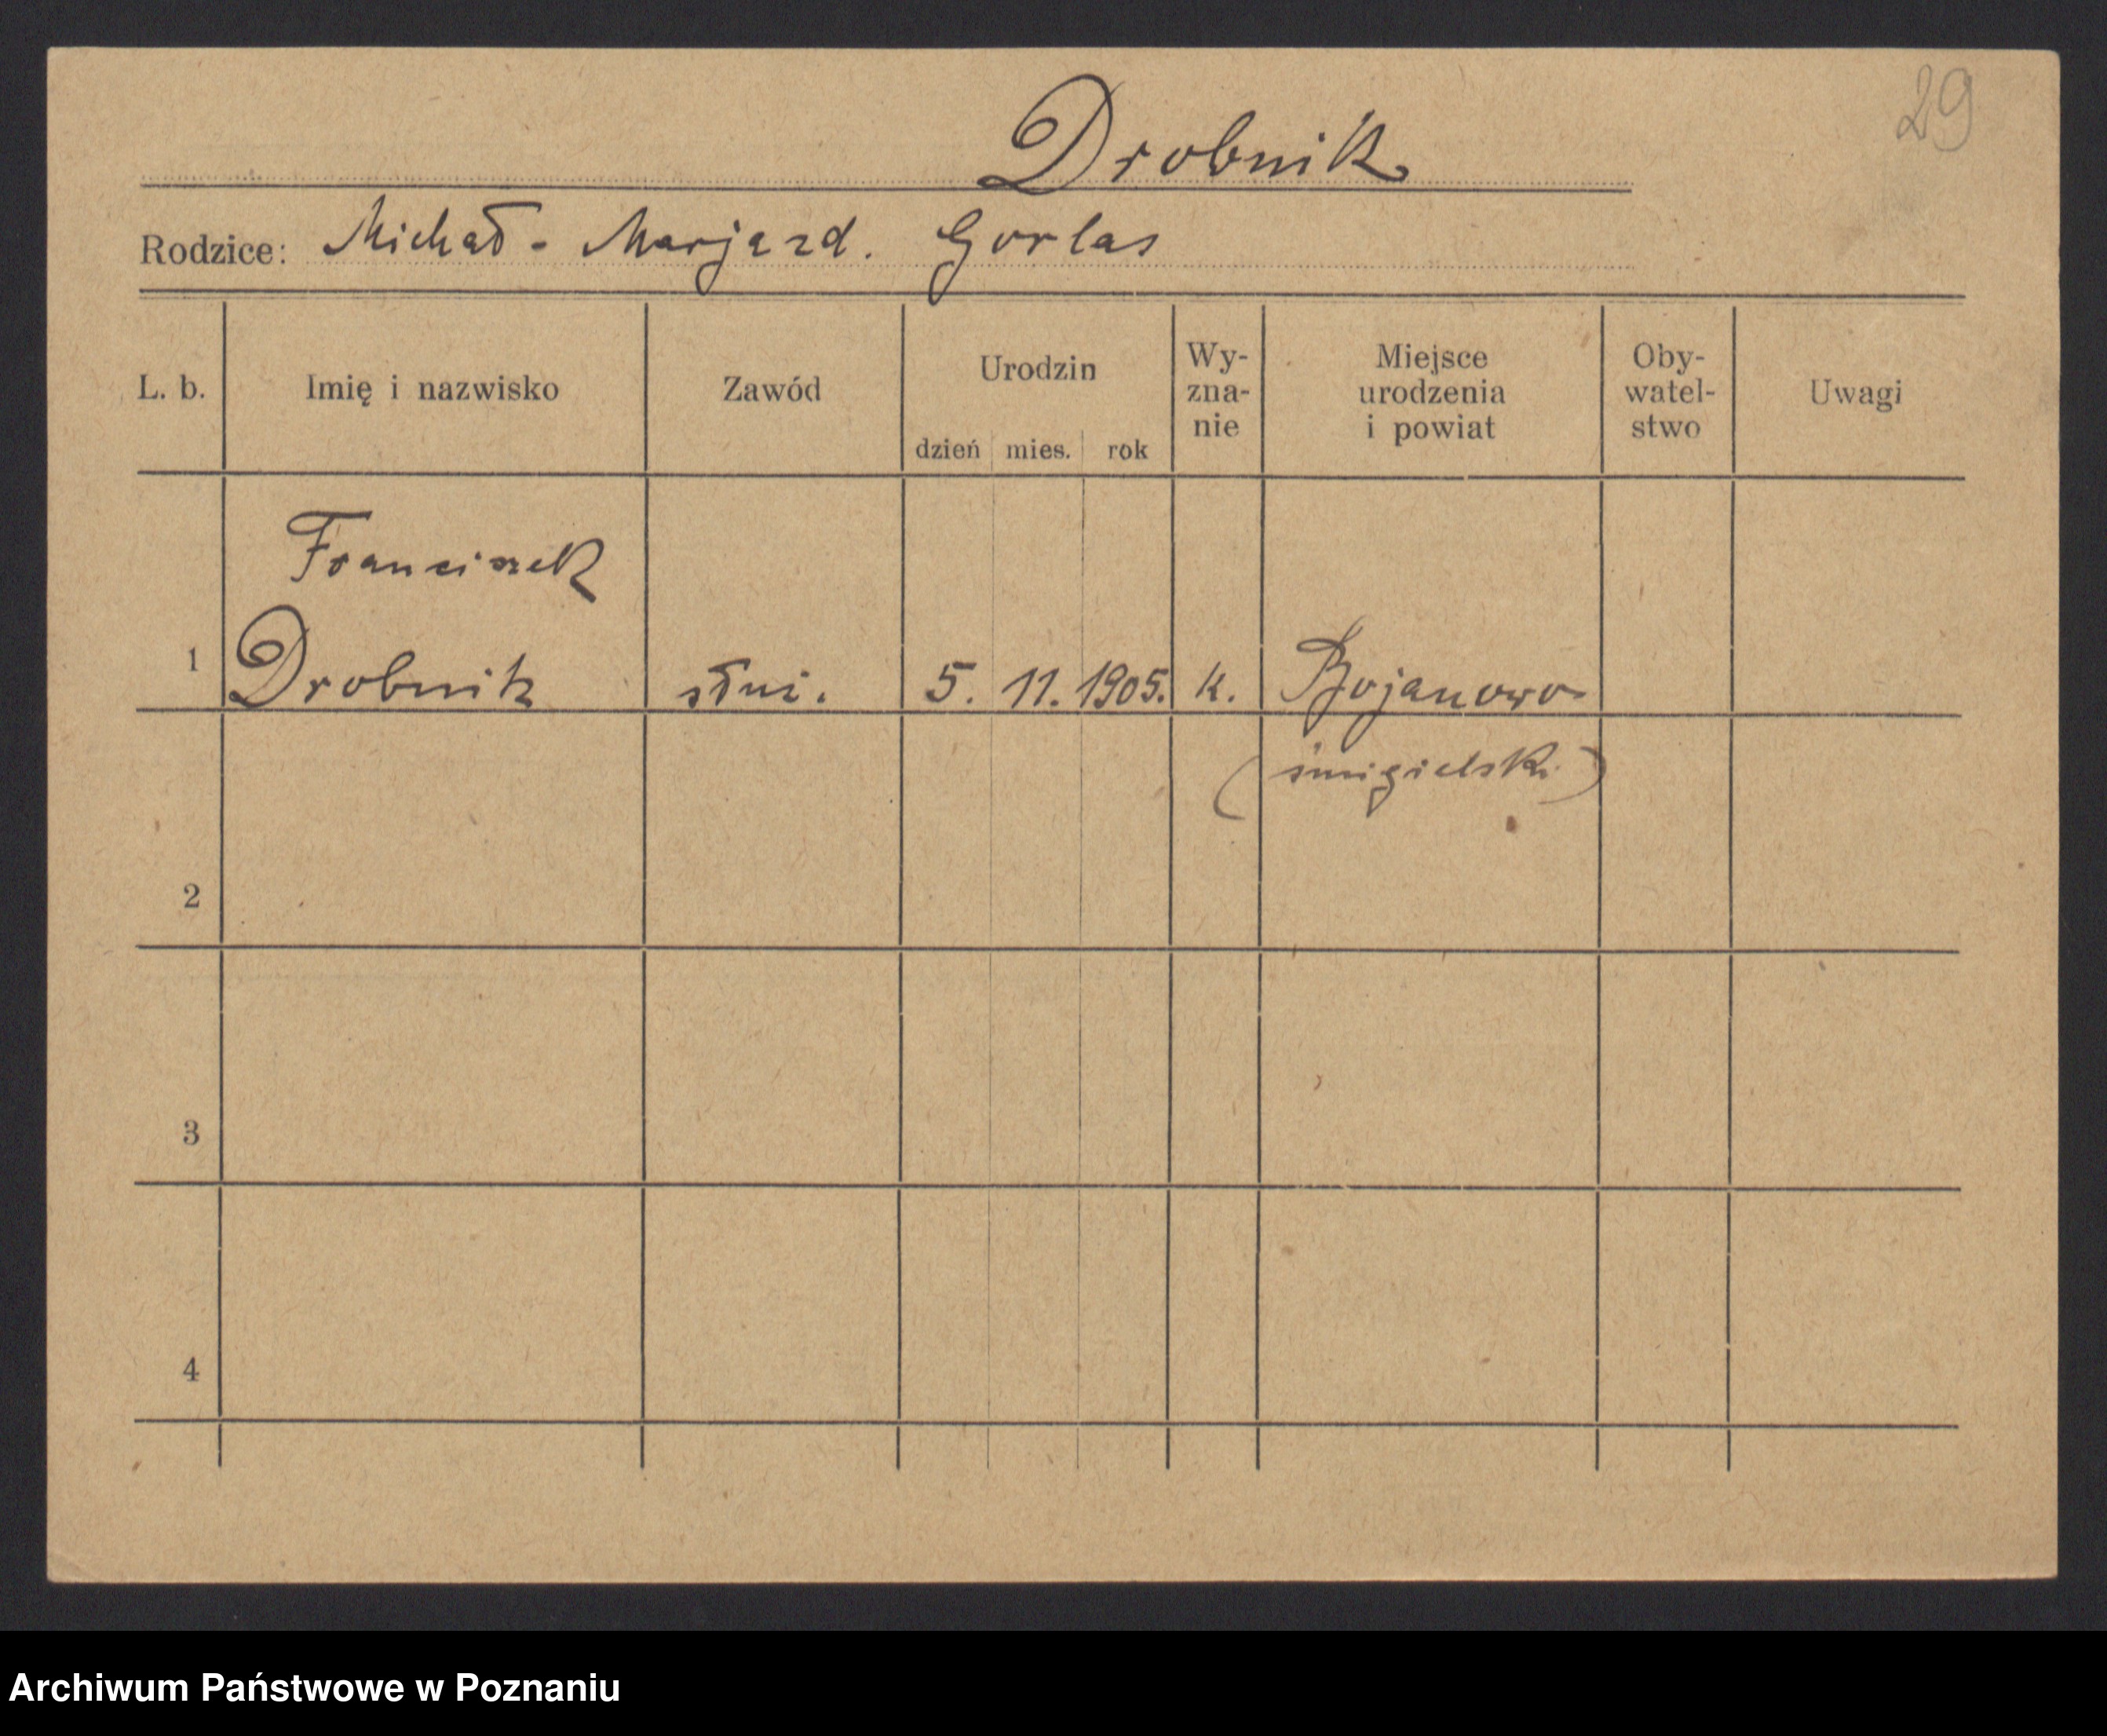 29
Drobnik
Rodzice: Michał - Marja zd. Gorlas
L. b. Imię i nazwisko Zawód Urodzin dzień mies. rok Wy-zna-nie Miejsce urodzenia i powiat Oby-watel-stwo Uwagi
Franciszek
1 Drobnik służ. 5. 11. 1905. k. Bojanowo
(śmigielski)
2
3
4
Archiwum Państwowe w Poznaniu